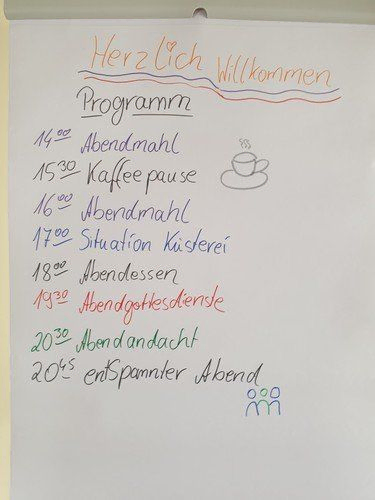 Herzlich Willkommen
Programm
14⁰⁰ Abendmahl
15³⁰ Kaffeepause
16⁰⁰ Abendmahl
17⁰⁰ Situation Küsterei
18⁰⁰ Abendessen
19³⁰ Abendgottesdienste
20³⁰ Abendandacht
20⁴⁵ entspannter Abend